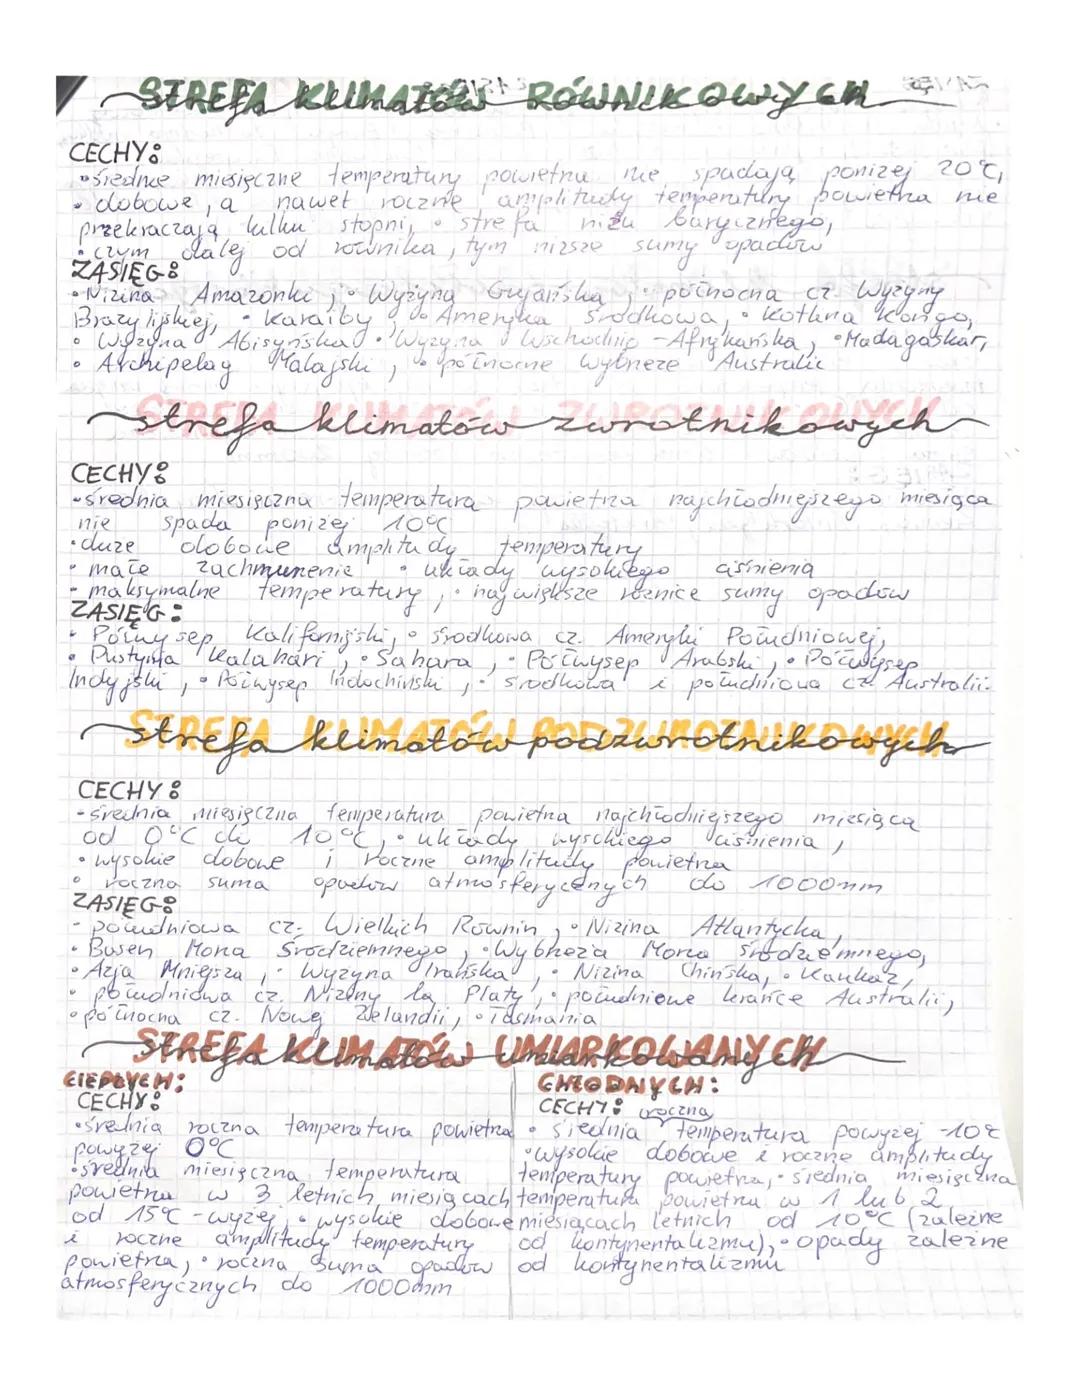 Strefa klimatów RÓWNIKOWYCH
CECHY:
• średnie miesięczne temperatury powietrza nie spadają poniżej 20°C,
• dobowe, a nawet roczne amplitudy temperatury powietrza nie
przekraczają kilku stopni, • strefa niżu barycznego,
• czym dalej od równika, tym niższe sumy opadów
ZASIĘG:
• Nizina Amazonki, • Wyżyna Gujańska, • północna cz. Wyżyny
Brazylijskiej, • Karaiby, • Ameryka Środkowa, • Kotlina Kongo,
• Wyżyna Abisyńska • Wyżyna Wschodnio-Afrykańska, • Madagaskar,
• Archipelag Malajski, • północne wybrzeże Australii
strefa klimatów zwrotnikowych
CECHY:
• średnia miesięczna temperatura powietrza najchłodniejszego miesiąca
nie spada poniżej 10°C
• duże dobowe amplitudy temperatury
• małe zachmurzenie • układy wysokiego ciśnienia
• maksymalne temperatury, • największe różnice sumy opadów
ZASIĘG:
• Półwysep Kalifornijski, • środkowa cz. Ameryki Południowej,
• Pustynia Kalahari, • Sahara, • Półwysep Arabski, • Półwysep
Indyjski, • Półwysep Indochiński, • środkowa i południowa cz. Australii.
strefa klimatów podzwrotnikowych
CECHY:
• średnia miesięczna temperatura powietrza najchłodniejszego miesiąca
od 0°C do 10°C, • układy wysokiego ciśnienia,
• wysokie dobowe i roczne amplitudy powietrza
• roczna suma opadów atmosferycznych do 1000mm
ZASIĘG:
• południowa cz. Wielkich Równin, • Nizina Atlantycka,
• Basen Morza Śródziemnego, • Wybrzeża Morza Śródziemnego,
• Azja Mniejsza, • Wyżyna Irańska, • Nizina Chińska, • Kaukaz,
• południowa cz. Niziny la Platy, • południowe krańce Australii,
• północna cz. Nowej Zelandii, • Tasmania
Strefa klimatów umiarkowanych
CIEPŁYCH:
CECHY:
• średnia roczna temperatura powietrza
powyżej 0°C
• średnia miesięczna temperatura
powietrza w 3 letnich miesiącach
od 15°C - wyżej, • wysokie dobowe
i roczne amplitudy temperatury
powietrza, • roczna suma opadów
atmosferycznych do 1000mm
CHŁODNYCH:
CECHY:
• średnia roczna temperatura powyżej -10°C
• wysokie dobowe i roczne amplitudy
temperatury powietrza, • średnia miesięczna
temperatura powietrza w 1 lub 2
miesiącach letnich od 10°C (zależne
od kontynentalizmu), • opady zależne
od kontynentalizmu